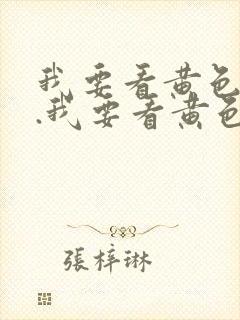 我要看黄色
.我要看黄色
張梓琳